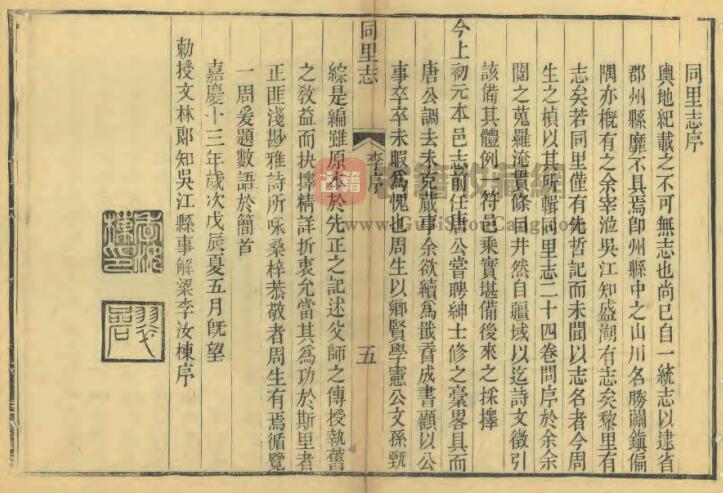 同里志序
輿地紀載之不可無志也尚已自一統志以逮省
郡州縣靡不具焉卽州縣中之山川名勝關鎭偏
隅亦概有之余宰涖吳江知盛湖有志矣黎里有
志矣若同里僅有先哲記而未聞以志名者今周
生之楨以其所輯同里志二十四卷問序於余余
閱之蒐羅淹貫條目井然自疆域以迄詩文徵引
該備其體例一符邑乘實堪備後來之採擇
今上初元本邑志前任唐公嘗聘紳士修之稾畧具而
唐公調去未克蕆事余欲續爲戢孴成書顧以公
事卒卒未暇爲愧也周生以鄉賢學憲公文孫甄
同里志
李序
五
綜是編雖原本於先正之記述父師之傳授執舊
之敎益而抉擇精詳折衷允當其爲功於斯里者
正匪淺尠雅詩所咏桑梓恭敬者周生有焉循覽
一周爰題數語於簡首
嘉慶十三年歲次戊辰夏五月旣望
勅授文林郞知吳江縣事解梁李汝棟序
古籍收藏網
www.GuJiShouCang.com